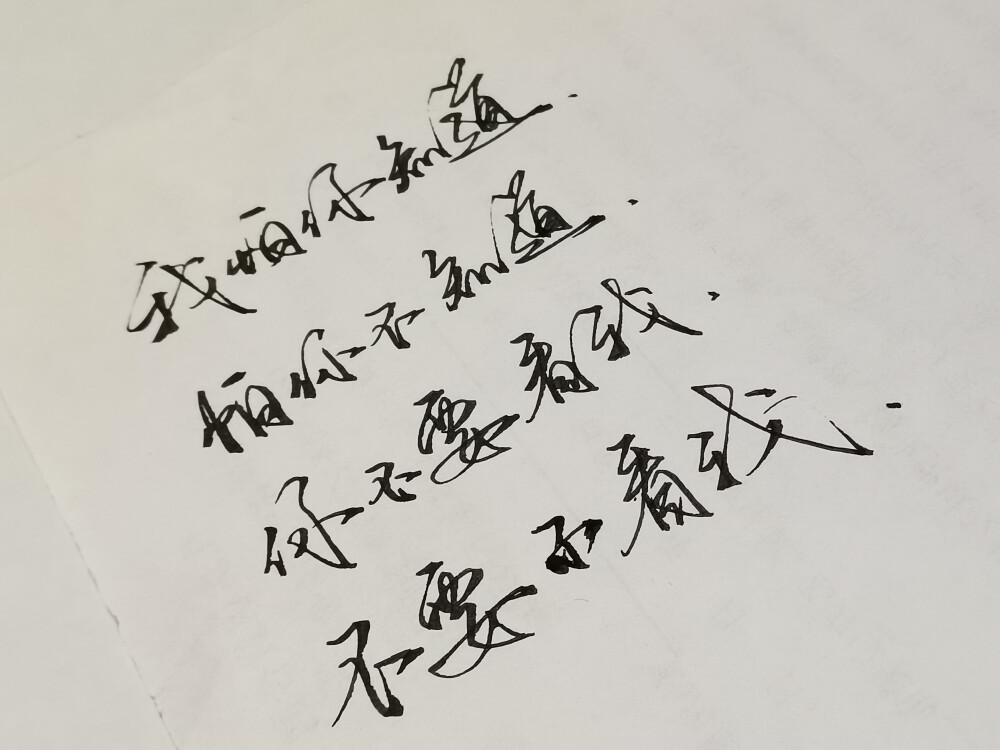 我怕你知道.
怕你不知道.
你不要看我.
不要不看我.